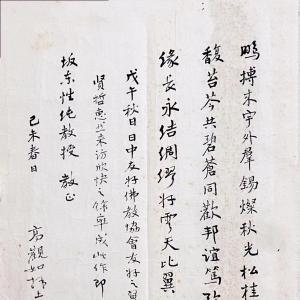 鵬搏宇外羣錫燦秋光松桂
馥苔岑共碧蒼同歡邦誼篤
緣長永結綢繆好雲天比翼
戊午秋日日中友好佛教協會友好之翼
賢哲惠然來訪欣快之餘率成此作即
坂東性純教授 教正
己未春日
高觀如拜上